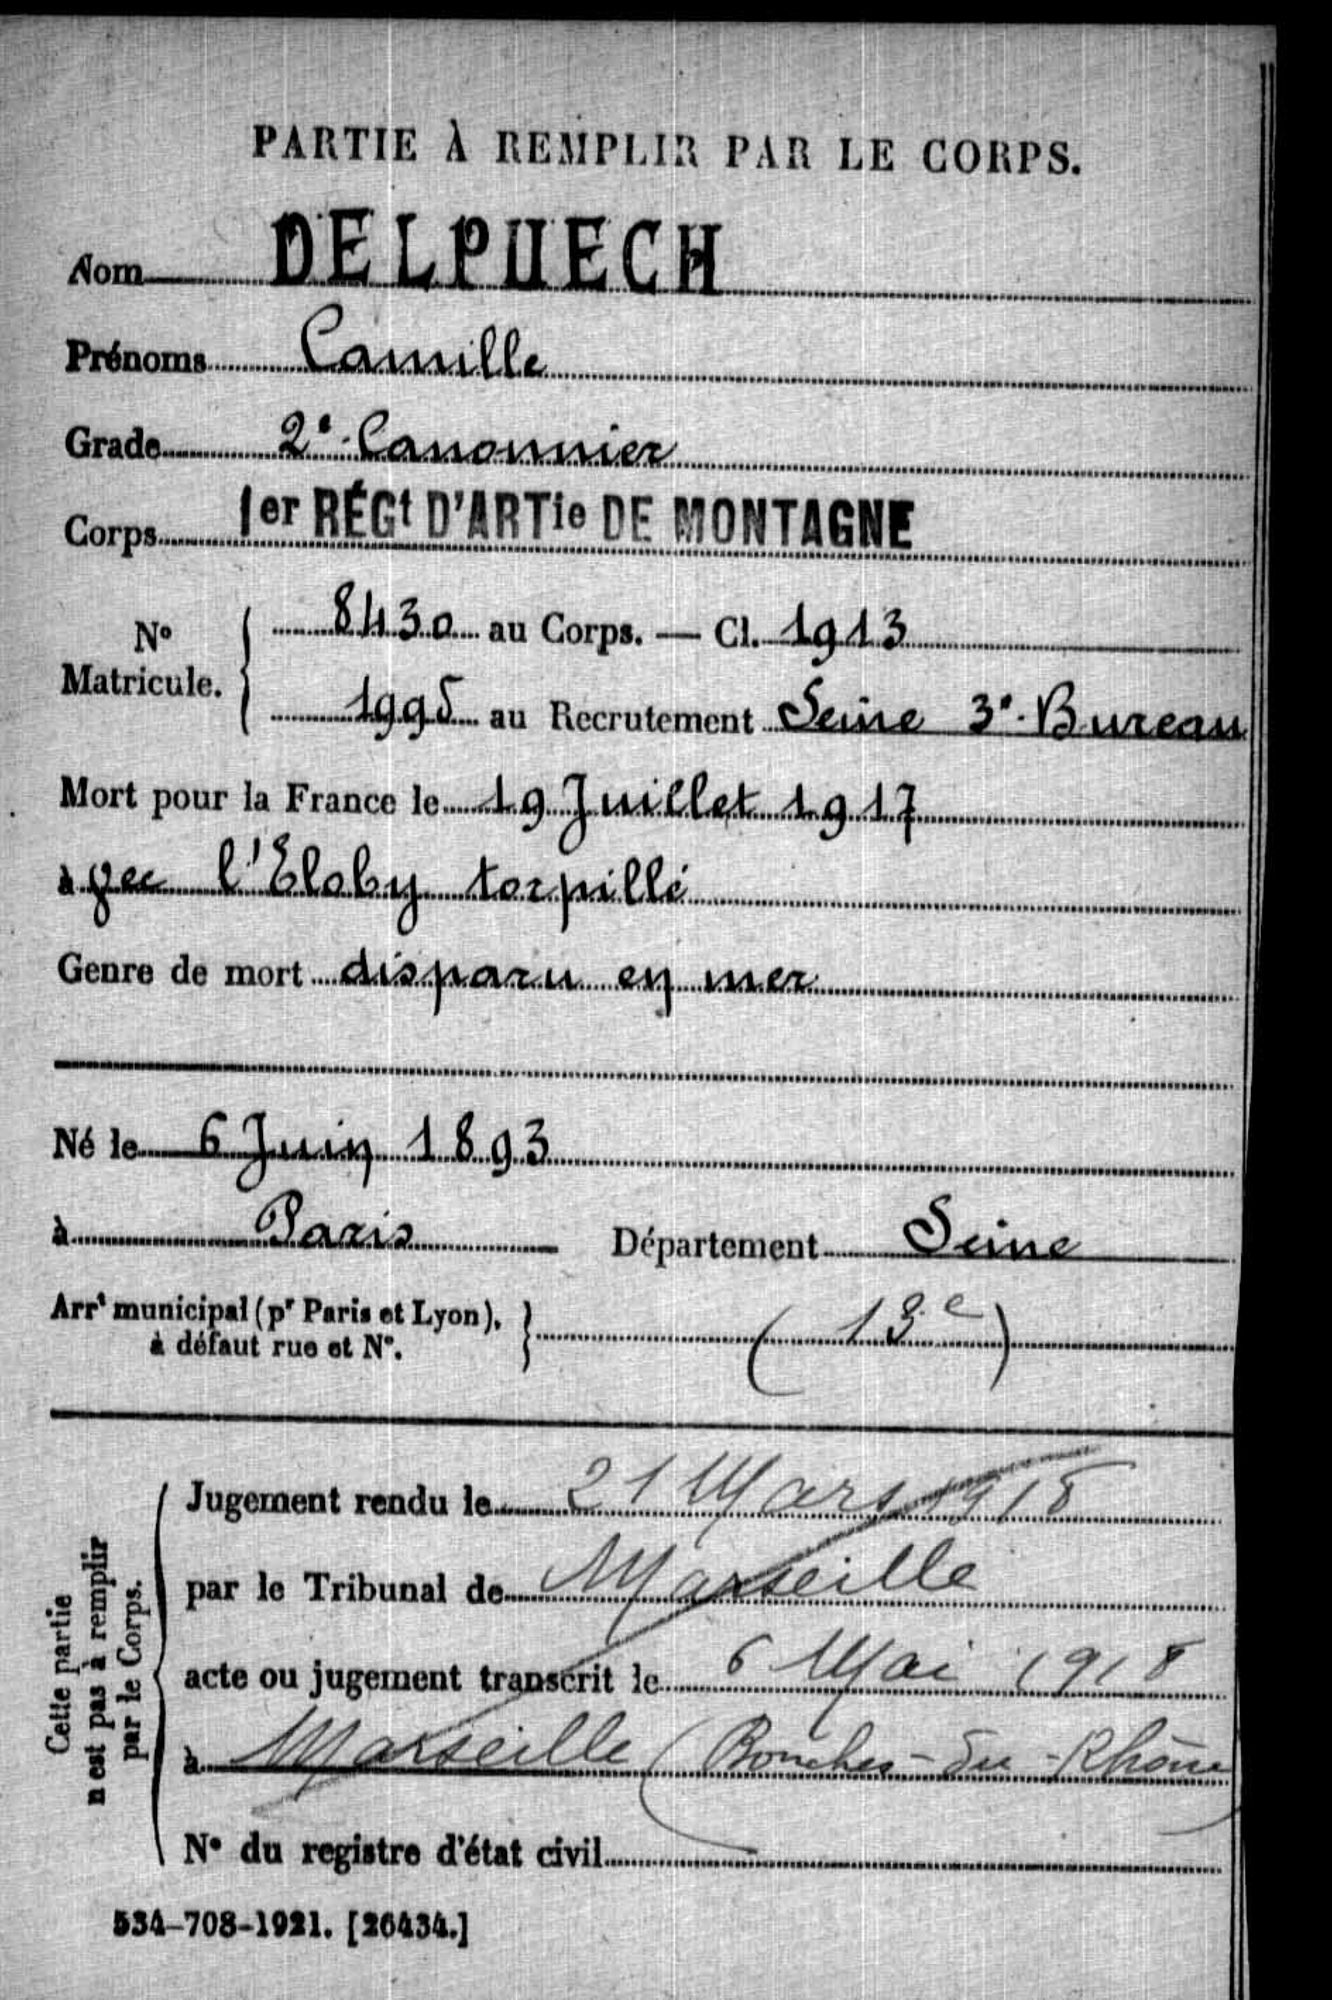 PARTIE À REMPLIR PAR LE CORPS.
Nom DELPUECH
Prénoms Camille
Grade 2e Canonnier
Corps 1er RÉGt D'ARTie DE MONTAGNE
No Matricule. { 8430 au Corps. — Cl. 1913
1995 au Recrutement Seine 3e Bureau
Mort pour la France le 19 Juillet 1917
à l'Eloby torpillé
Genre de mort disparu en mer
Né le 6 Juin 1893
à Paris Département Seine
Arrt municipal (pr Paris et Lyon), à défaut rue et No. } (13e)
Cette partie n'est pas à remplir par le Corps.
Jugement rendu le 21 Mars 1918
par le Tribunal de Marseille
acte ou jugement transcrit le 6 Mai 1918
à Marseille (Bouches-du-Rhône)
No du registre d'état civil
534-708-1921. [26434.]